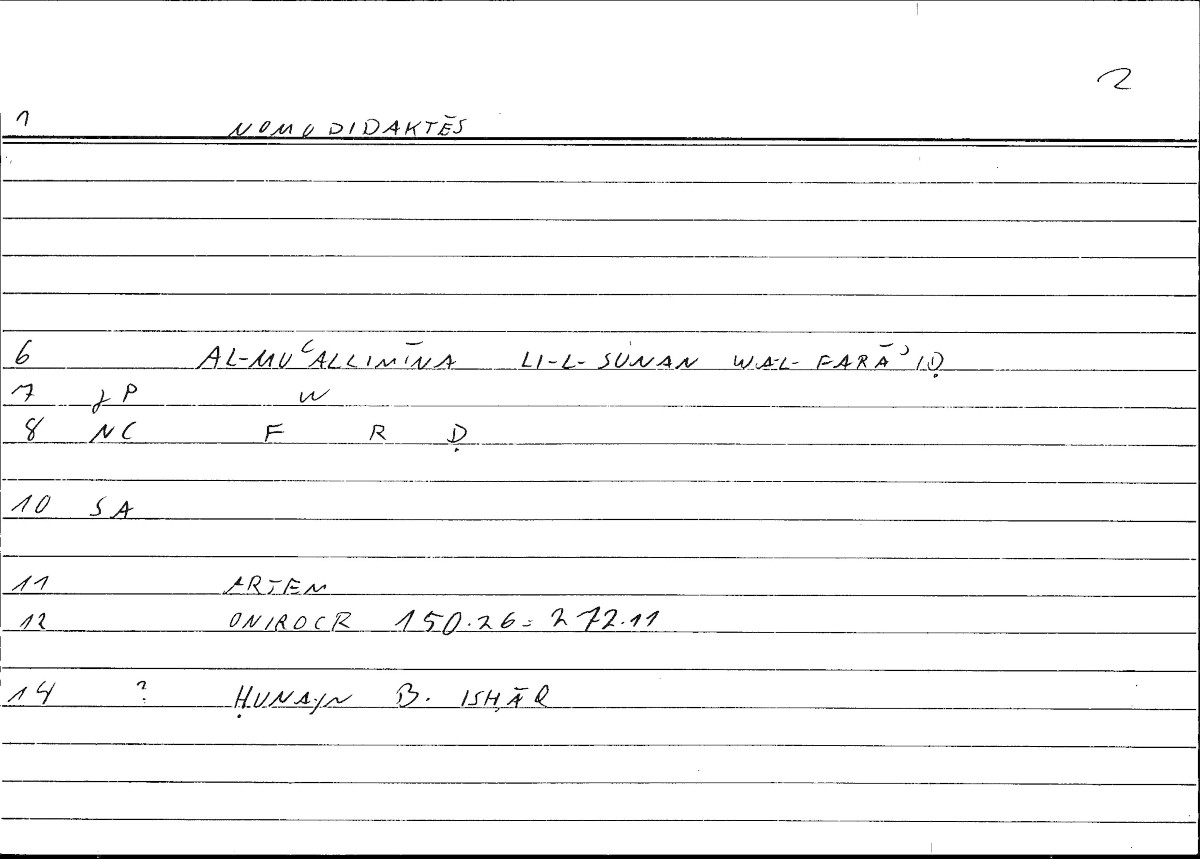 2
1 NOMODIDAKTĒS
6 AL-MUʿALLIMĪNA LI-L-SUNAN WAL-FARĀʾIḌ
7 P W
8 NC F R Ḍ
10 SA
11 ARTEM
12 ONIROCR 150.26 = 272.11
14 ? ḤUNAYN B. ISḤĀQ